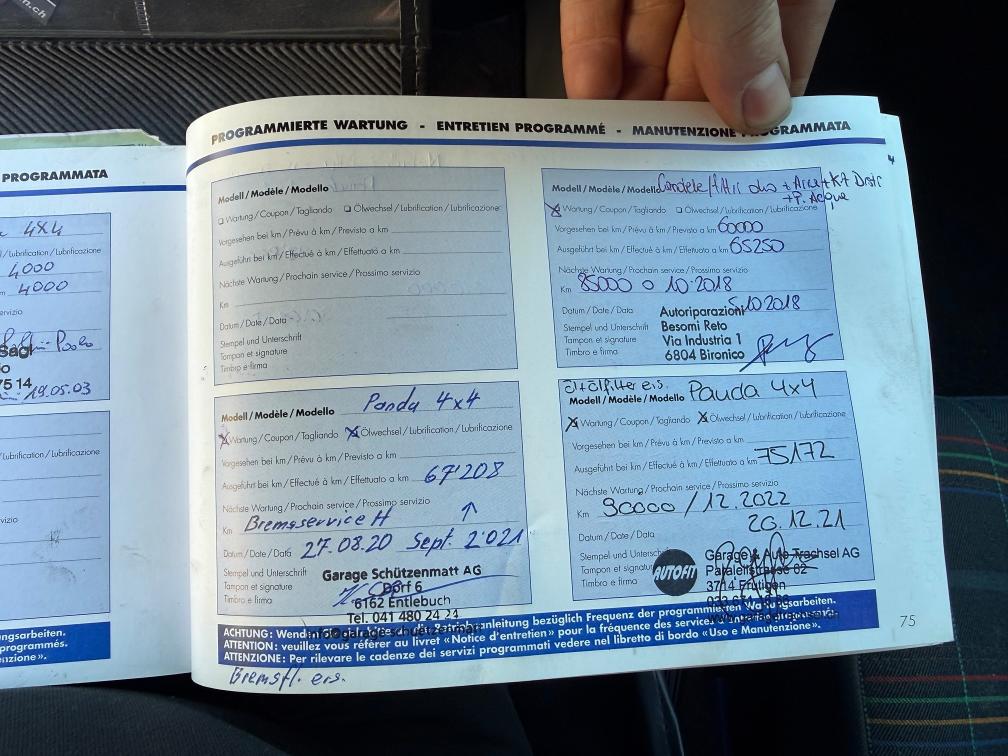 n.ch
PROGRAMMATA
4x4
/Lubrification/Lubrificazione
4000
4000
ervizio
Sagl
o
75 14
19.05.03
Lubrification/Lubrificazione
vizio
ngsarbeiten.
programmés.
nzione».
PROGRAMMIERTE WARTUNG - ENTRETIEN PROGRAMMÉ - MANUTENZIONE PROGRAMMATA
Modell/Modèle/Modello
Wartung/Coupon/Tagliando Ölwechsel/Lubrification/Lubrificazione
Vorgesehen bei km/Prévu à km/Previsto a km
Ausgeführt bei km/Effectué à km/Effettuato a km
Nächste Wartung/Prochain service/Prossimo servizio
Km
Datum/Date/Data
Stempel und Unterschrift
Tampon et signature
Timbro e firma
Modell/Modèle/Modello Candele/
+P. Acqua
Wartung/Coupon/Tagliando Ölwechsel/Lubrification/Lubrificazione
Vorgesehen bei km/Prévu à km/Previsto a km 60000
Ausgeführt bei km/Effectué à km/Effettuato a km 65250
Nächste Wartung/Prochain service/Prossimo servizio
Km 85000 o 10.2018
Datum/Date/Data 5.10.2018
Stempel und Unterschrift
Tampon et signature
Timbro e firma
Autoriparazioni
Besomi Reto
Via Industria 1
6804 Bironico
Modell/Modèle/Modello Panda 4x4
Wartung/Coupon/Tagliando Ölwechsel/Lubrification/Lubrificazione
Vorgesehen bei km/Prévu à km/Previsto a km
Ausgeführt bei km/Effectué à km/Effettuato a km 67'208
Nächste Wartung/Prochain service/Prossimo servizio
Km Bremsservice H ↑
Datum/Date/Data 27.08.20 Sept. 2'021
Stempel und Unterschrift
Tampon et signature
Timbro e firma
Garage Schützenmatt AG
Dorf 6
6162 Entlebuch
Tel. 041 480 24 24
Öl+Ölfilter ers.
Modell/Modèle/Modello Panda 4x4
Wartung/Coupon/Tagliando Ölwechsel/Lubrification/Lubrificazione
Vorgesehen bei km/Prévu à km/Previsto a km
Ausgeführt bei km/Effectué à km/Effettuato a km 75172
Nächste Wartung/Prochain service/Prossimo servizio
Km 90000/12.2022
20.12.21
Datum/Date/Data
Stempel und Unterschrift
Tampon et signature
Timbro e firma
AUTOFIT
Garage & Auto Trachsel AG
Parallelstrasse 62
3714 Frutigen
ACHTUNG: Wenden Sie sich an die Betriebsanleitung bezüglich Frequenz der programmierten Wartungsarbeiten.
ATTENTION: veuillez vous référer au livret «Notice d'entretien» pour la fréquence des services d'entretien programmés.
ATTENZIONE: Per rilevare le cadenze dei servizi programmati vedere nel libretto di bordo «Uso e Manutenzione».
Bremsfl. ers.
75